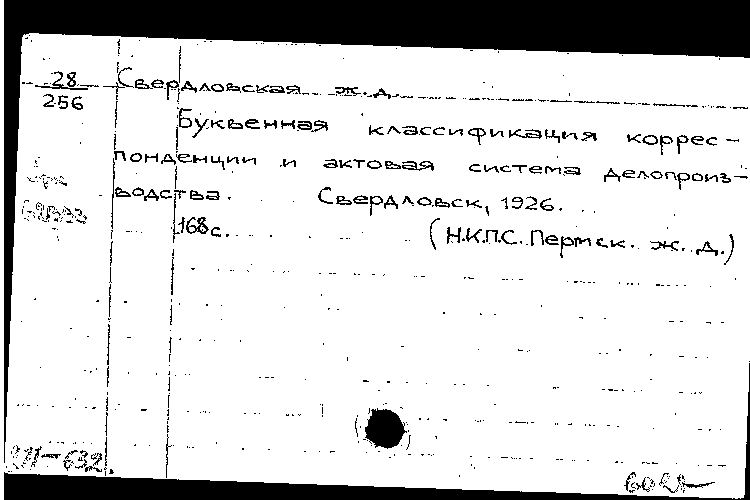 28 Свердловская ж. д.
256
Буквенная классификация коррес-
понденции и актовая система делопроиз-
водства. Свердловск, 1926.
168 с. (Н.К.П.С. Пермск. ж. д.)
632.